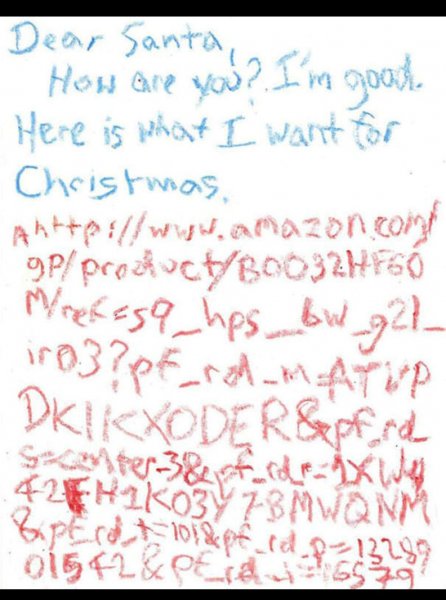 Dear Santa,
How are you? I'm good.
Here is what I want for
Christmas.
A http://www.amazon.com/
gp/product/B0032HF60
M/ref=s9_hps_bw_g21_
ir03?pf_rd_m=ATVP
DKIKX0DER&pf_rd_
s=center-3&pf_rd_r=1XW4
42FH1K03Y7BMWQNM
&pf_rd_t=101&pf_rd_p=13289
01542&pf_rd_i=16579